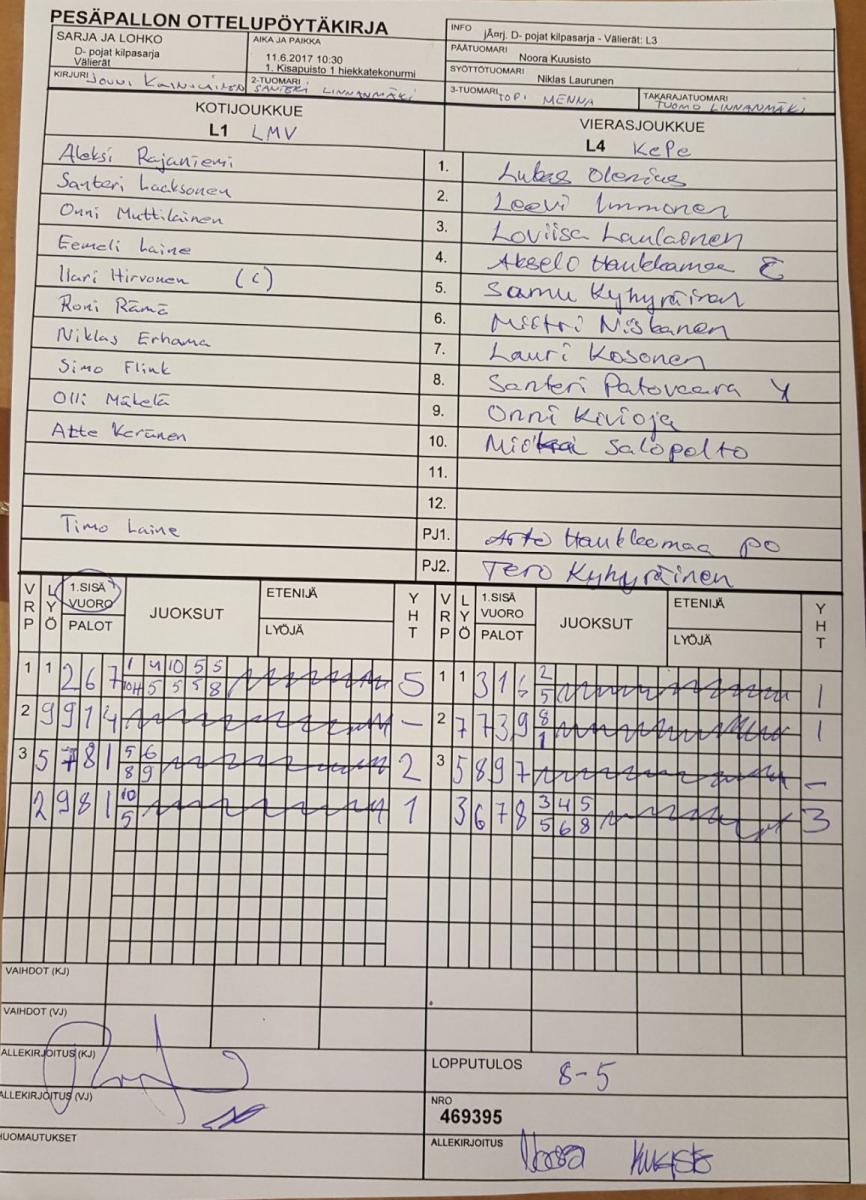 PESÄPALLON OTTELUPÖYTÄKIRJA
SARJA JA LOHKO
D- pojat kilpasarja
Välierät
AIKA JA PAIKKA
11.6.2017 10:30
1. Kisapuisto 1 hiekkatekonurmi
INFO
jÃ¤rj. D- pojat kilpasarja - Välierät: L3
PÄÄTUOMARI
Noora Kuusisto
SYÖTTÖTUOMARI
Niklas Laurunen
KIRJURI Jouni
2-TUOMARI SANTERI LINNANMÄKI
3-TUOMARI TOPI MENNA
TAKARAJATUOMARI
TUOMO LINNANMÄKI
KOTIJOUKKUE
L1 LMV
VIERASJOUKKUE
L4 KePe
Aleksi Rajaniemi 1. Lukas Olenius
Santeri Laaksonen 2. Leevi Immonen
Onni Muttilainen 3. Loviisa Laulainen
Eemeli Laine 4. Akselo Haukkamaa E
Ilari Hirvonen (C) 5. Samu Kyhyräinen
Roni Rämä 6. Miitri Niskanen
Niklas Erhama 7. Lauri Kosonen
Simo Flink 8. Santeri Patovaara Y
Olli Mäkelä 9. Onni Kivioja
Atte Keränen 10. Salopelto
11.
12.
Timo Laine PJ1. Arto Haukkamaa PO
PJ2. Tero Kyhyräinen
VRP LYÖ 1.SISÄ VUORO PALOT JUOKSUT ETENIJÄ LYÖJÄ YHT VRP LYÖ 1.SISÄ VUORO PALOT JUOKSUT ETENIJÄ LYÖJÄ YHT
1 1 2 6 7 1 4 10 5 5 5 1 1 3 1 6 2 1
10H 5 5 5 8 5
2 9 9 1 4 - 2 7 7 3 9 8 1
1
3 5 7 8 1 5 6 2 3 5 8 9 7 -
8 9
2 9 8 1 10 1 3 6 7 8 3 4 5 3
5 5 6 8
VAIHDOT (KJ)
VAIHDOT (VJ)
ALLEKIRJOITUS (KJ)
LOPPUTULOS 8-5
ALLEKIRJOITUS (VJ)
NRO
469395
HUOMAUTUKSET
ALLEKIRJOITUS Noora Kuusisto